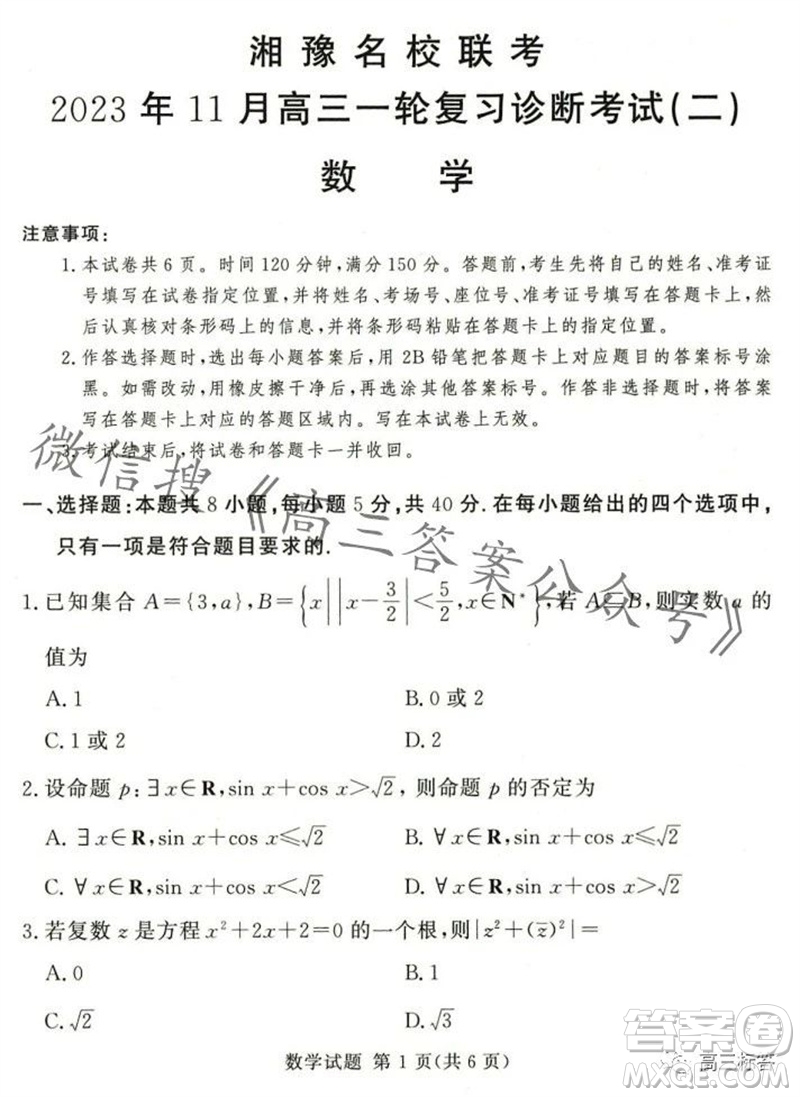 湘豫名校联考
2023年11月高三一轮复习诊断考试(二)
数 学
注意事项:
1. 本试卷共6页。时间120分钟,满分150分。答题前,考生先将自己的姓名、准考证
号填写在试卷指定位置,并将姓名、考场号、座位号、准考证号填写在答题卡上,然
后认真核对条形码上的信息,并将条形码粘贴在答题卡上的指定位置。
2. 作答选择题时,选出每小题答案后,用2B铅笔把答题卡上对应题目的答案标号涂
黑。如需改动,用橡皮擦干净后,再选涂其他答案标号。作答非选择题时,将答案
写在答题卡上对应的答题区域内。写在本试卷上无效。
3. 考试结束后,将试卷和答题卡一并收回。
一、选择题:本题共8小题,每小题5分,共40分.在每小题给出的四个选项中,
只有一项是符合题目要求的.
1. 已知集合 A={3,a},B={x||x-3/2|<5/2,x∈N*},若 A⊆B,则实数 a 的
值为
A. 1 B. 0或2
C. 1或2 D. 2
2. 设命题 p:∃x∈R,sin x+cos x>√2,则命题 p 的否定为
A. ∃x∈R,sin x+cos x≤√2 B. ∀x∈R,sin x+cos x≤√2
C. ∀x∈R,sin x+cos x<√2 D. ∀x∈R,sin x+cos x>√2
3. 若复数 z 是方程 x²+2x+2=0 的一个根,则|z²+(z̅)²|=
A. 0 B. 1
C. √2 D. √3
数学试题 第1页(共6页)
微信搜《高三答案公众号》
答案圈
MXQE.COM
高三标答